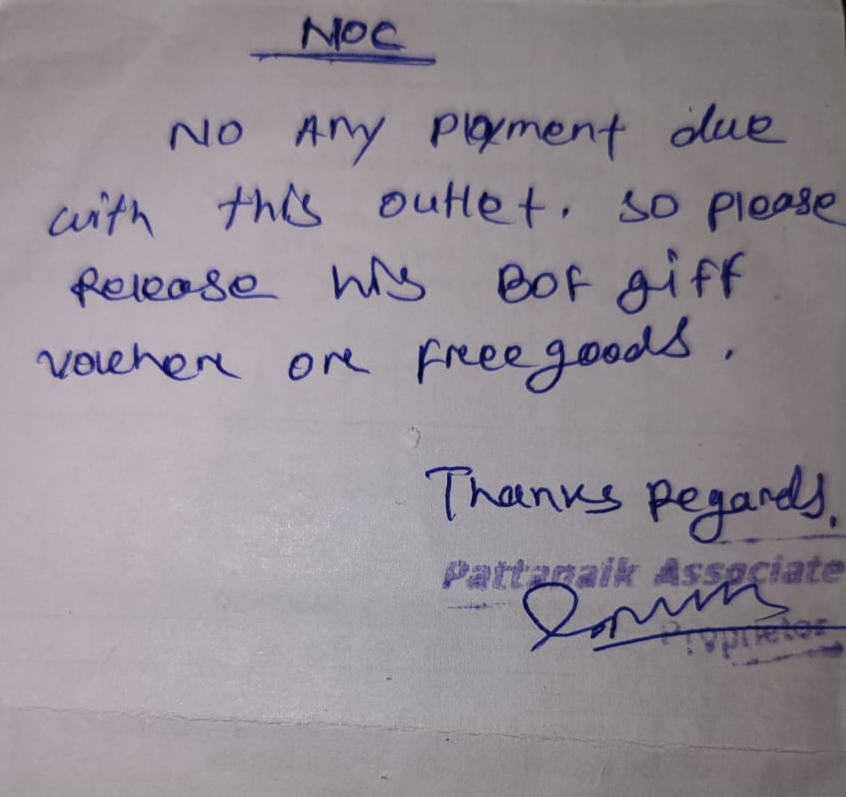 NOC
NO Any Payment due
with this outlet. so please
Release his BOF giff
voucher or free goods.
Thanks Regards,
Pattanaik Associate
Proprietor